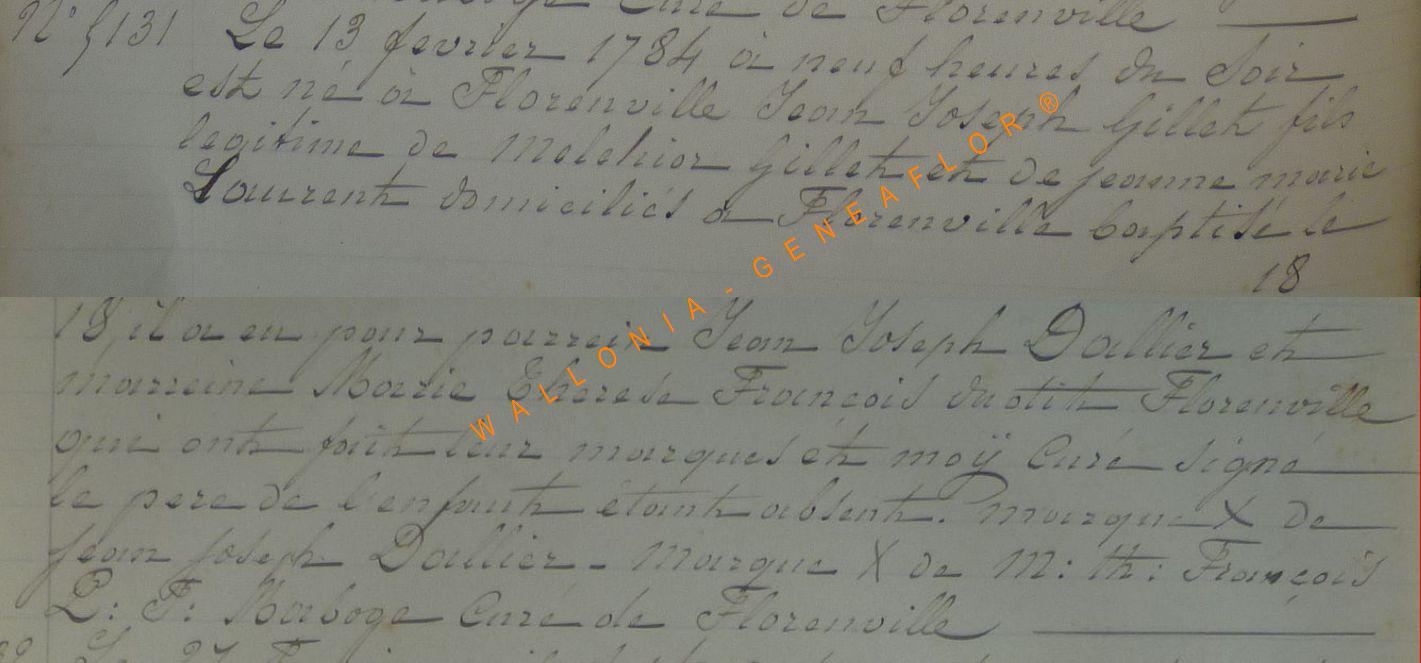 Curé de Florenville
N° 5131 Le 13 fevrier 1784 à neuf heures du Soir
est né à Florenville Jean Joseph Gillet fils
legitime de Melchior Gillet et de jeanne marie
Laurent domiciliés à Florenville baptisé le
18
18 il a eu pour parrein Jean Joseph Dallier et
marreine Marie Therese François dudit Florenville
qui ont fait leur marques et moÿ Curé signé
le pere de l'enfant étant absent. marque X de
jean joseph Dallier - Marque X de M: th: François
L: F: Marboge Curé de Florenville
Le 27
WALLONIA - GENEAFLOR ®